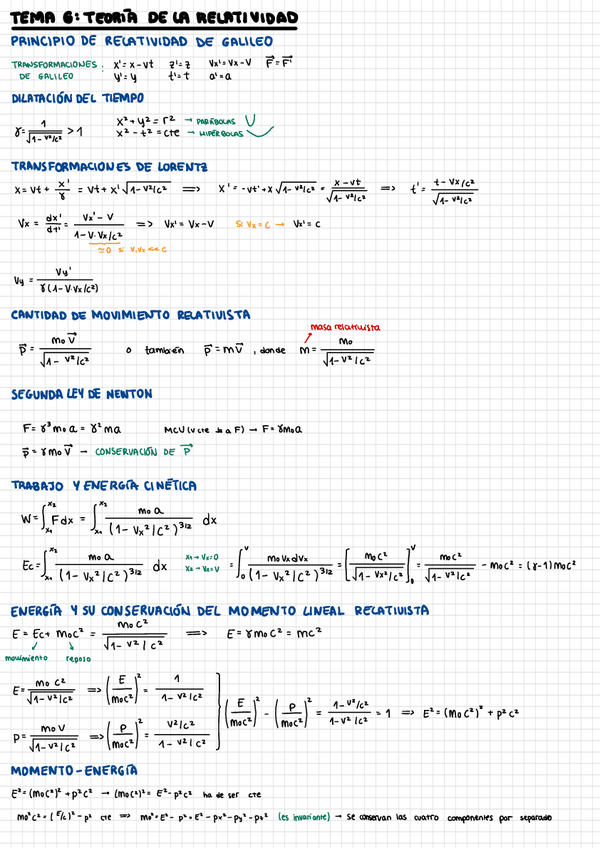 TEMA 6: TEORÍA DE LA RELATIVIDAD
PRINCIPIO DE RELATIVIDAD DE GALILEO
TRANSFORMACIONES DE GALILEO: x' = x - vt z' = z Vx' = Vx - V F⃗ = F⃗'
y' = y t' = t a' = a
DILATACIÓN DEL TIEMPO
γ = 1/√(1 - v²/c²) > 1
x² + y² = r² → PARÁBOLAS
x² - t² = cte → HIPÉRBOLAS
TRANSFORMACIONES DE LORENTZ
x = vt + x'/γ = vt + x'√(1 - v²/c²) ⟹ x' = -vt' + x√(1 - v²/c²) = (x - vt)/√(1 - v²/c²) ⟹ t' = (t - vx/c²)/√(1 - v²/c²)
Vx = dx'/dt' = (Vx' - V)/(1 - V·Vx/c²) ⟹ Vx' = Vx - V Si Vx = c → Vx' = c
≈0 si V,Vx <<c
Vy = Vy'/(γ(1 - V·Vx/c²))
CANTIDAD DE MOVIMIENTO RELATIVISTA
masa relativista
p⃗ = m₀v⃗/√(1 - v²/c²) o también p⃗ = mv⃗, donde m = m₀/√(1 - v²/c²)
SEGUNDA LEY DE NEWTON
F = γ³m₀a = γ²ma MCU (v cte ⊥ a F) → F = γm₀a
p⃗ = γm₀v⃗ → CONSERVACIÓN DE P⃗
TRABAJO Y ENERGÍA CINÉTICA
W = ∫ₓ₁ˣ² F dx = ∫ₓ₁ˣ² m₀a/(1 - Vx²/c²)^3/2 dx
Ec = ∫ₓ₁ˣ² m₀a/(1 - Vx²/c²)^3/2 dx x₁ → Vx = 0 x₂ → Vx = V = ∫₀ⱽ m₀VxdVx/(1 - Vx²/c²)^3/2 = [m₀c²/√(1 - Vx²/c²)]₀ⱽ = m₀c²/√(1 - v²/c²) - m₀c² = (γ-1)m₀c²
ENERGÍA Y SU CONSERVACIÓN DEL MOMENTO LINEAL RELATIVISTA
E = Ec + m₀c² = m₀c²/√(1 - v²/c²) ⟹ E = γm₀c² = mc²
movimiento reposo
E = m₀c²/√(1 - v²/c²) ⟹ (E/m₀c²)² = 1/(1 - v²/c²)
(E/m₀c²)² - (p/m₀c)² = (1 - v²/c²)/(1 - v²/c²) = 1 ⟹ E² = (m₀c²)² + p²c²
p = m₀v/√(1 - v²/c²) ⟹ (p/m₀c)² = (v²/c²)/(1 - v²/c²)
MOMENTO-ENERGÍA
E² = (m₀c²)² + p²c² → (m₀c²)² = E² - p²c² ha de ser cte
m₀²c² = (E/c)² - p² cte ⟹ m₀² = E² - p² = E² - px² - py² - pz² (es invariante) → Se conservan las cuatro componentes por separado